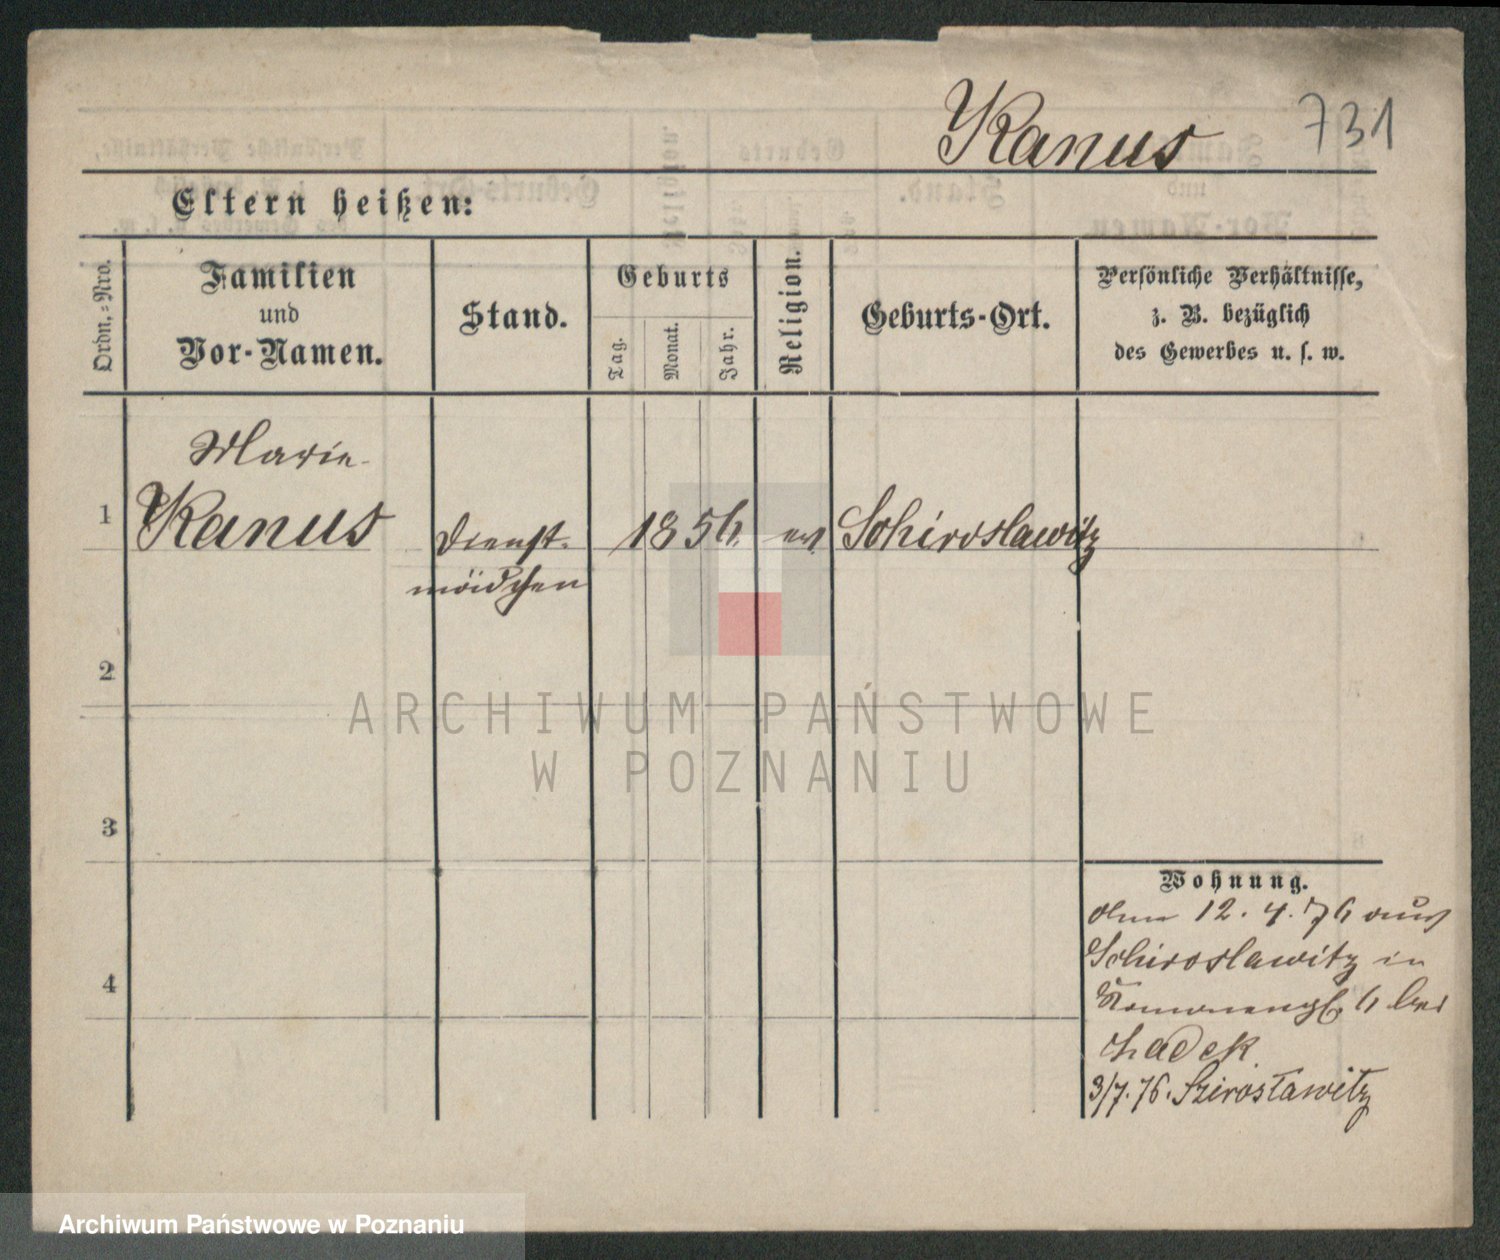 Kanus 731
Eltern heißen:
Ordn.=Nro.
Familien
und
Vor-Namen.
Stand.
Geburts
Tag.
Monat.
Jahr.
Religion.
Geburts-Ort.
Persönliche Verhältnisse,
z. B. bezüglich
des Gewerbes u. s. w.
Marie
1 Kanus Dienst- 1856 ev Schiroslawitz
mädchen
2
ARCHIWUM PAŃSTWOWE
W POZNANIU
3
4
Wohnung.
12. 4. 76 aus
Schiroslawitz in
6 bei
Ladek
3/7. 76. Szirosławitz
Archiwum Państwowe w Poznaniu